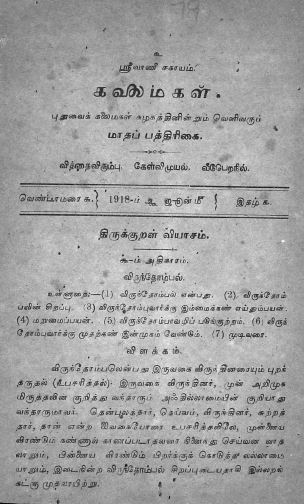 உ
ஸ்ரீவாணி சகாயம்.
கலைமகள்.
புதுவைக் கலைமகள் கழகத்தினின்றும் வெளிவரும்
மாதப் பத்திரிகை.
வித்தைவிரும்பு. கேள்விமுயல். வீடுபெறநில்.
வெண்டாமரை க. 1918-ம் ஆ ஜூன் மீ இதழ் க.
திருக்குறள் வியாசம்.
அதிகாரம்.
விருந்தோம்பல்.
உள்ளுறை:—(1) விருந்தோம்பல் என்பது. (2) விருந்தோம்
பலின் சிறப்பு. (3) விருந்தோம்புவார்க்கு இம்மைக்கண் எய்தும்பயன்.
(4) மறுமைப்பயன். (5) விருந்தோம்பாவழிப் படுங்குற்றம். (6) விருந்
தோம்புவார்க்கு முதற்கண் இன்முகம் வேண்டும். (7) முடிவுரை.
விளக்கம்.
விருந்தோம்பலென்பது இருவகை விருந்தினரையும் புறந்
தருதல் (உபசரித்தல்)- இருவகை விருந்தினர், முன் அறிமுக
மிருத்தலின் குறித்து வந்தாரும் அஃதில்லாமையின் குறியாது
வந்தாருமாவர். தென்புலத்தார், தெய்வம், விருந்தினர், சுற்றத்
தார், தான் என்ற ஐவகையோரை உபசரித்தலிலே, முன்னைய
விரண்டும் கண்ணுல் காணப்படாதவரா நினைந்து செய்வன வாத
லானும், பின்னைய விரண்டும் பிறர்க்குக் கொடுத்தலல்லாமை
யானும், இடைநின்ற விருந்தோம்பல் சிறப்புடையதாகி இல்லறல்
கட்கு முதலாயிற்று.